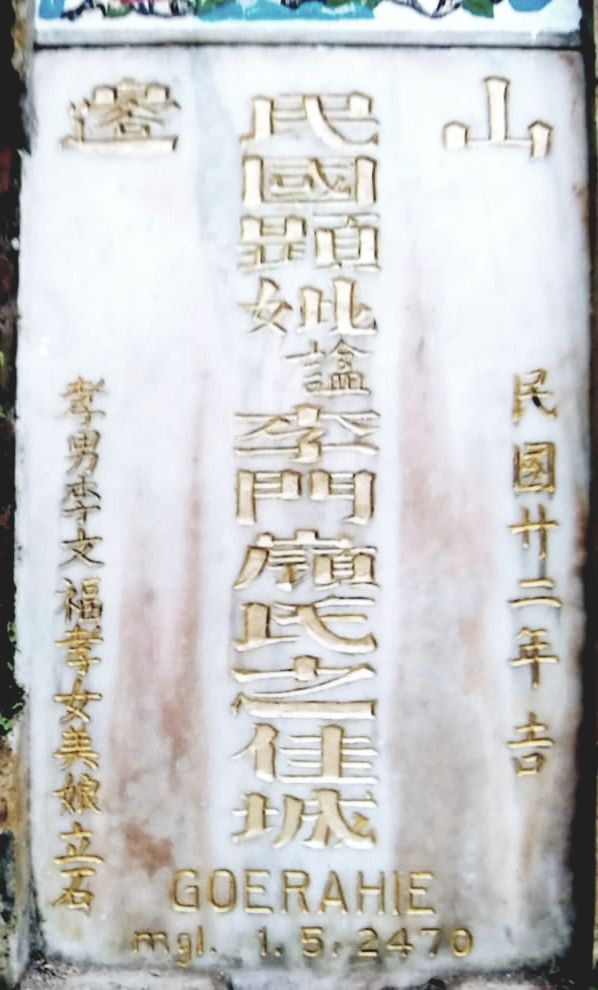 山邊
民國廿二年吉
民國顯妣謚李門嶺氏之佳城
孝男李文福孝女美娘立石
GOERAHIE
mgl. 1.5.2470